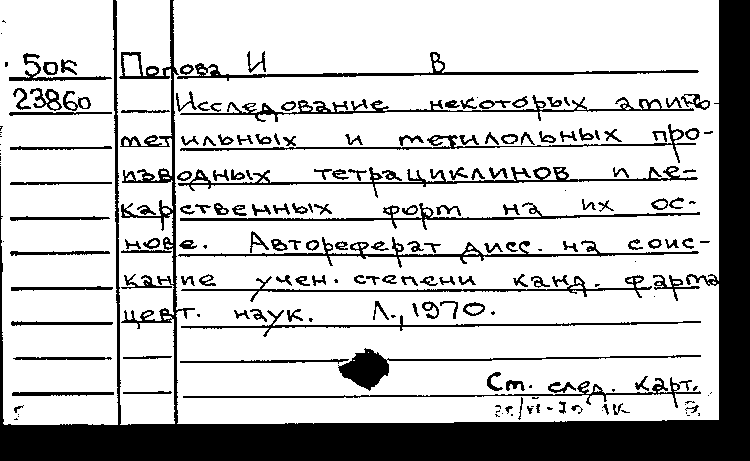 50к Попова, И В
23860 Исследование некоторых амино-
метильных и метилольных про-
изводных тетрациклинов и ле-
карственных форм на их ос-
нове. Автореферат дисс. на соис-
кание учен. степени канд. фарма
цевт. наук. Л., 1970.
См. след. карт.